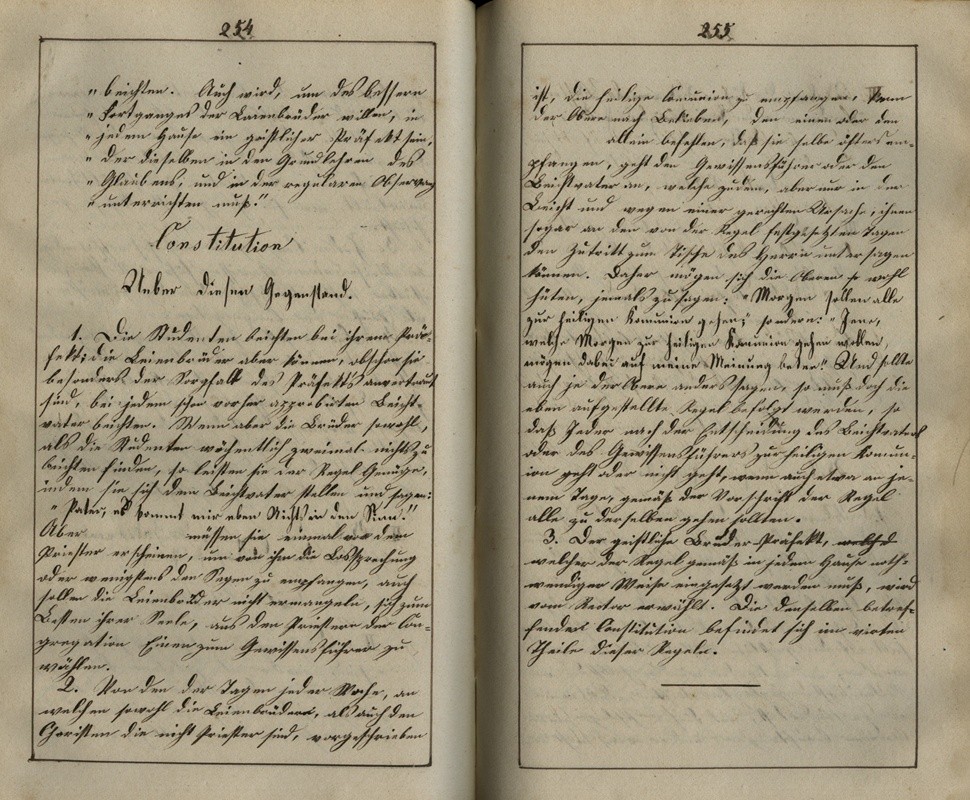 254
„ beichten. Auch wird, um des bessern
„ Fortganges der Laienbrüder willen, in
„ jedem Hause ein geistlicher Präfekt sein,
„ der dieselben in den Grundlehren des
„ Glaubens, und in der regularen Observanz
„ unterrichten muß.“
Constitution
Ueber diesen Gegenstand.
1. Die Studenten beichten bei ihrem Prä-
fekt; die Leienbrüder aber können, obschon sie
besonders der Sorgfalt des Präfekts anvertraut
sind, bei jedem schon vorher approbirten Beicht-
vater beichten. Wenn aber die Brüder sowohl,
als die Studenten wöchentlich zweimal nichts zu
beichten finden, so leisten sie der Regel Genüge,
indem sie sich dem Beichtvater stellen und sagen:
„ Pater, es kommt mir eben Nichts in den Sinn.“
Aber müssen sie einmal vor dem
Priester erscheinen, um von ihm die Lossprechung
oder wenigstens den Segen zu empfangen, auch
sollen die Leienbrüder nicht ermangeln, sich zum
Besten ihrer Seele, aus den Priestern der Con-
gregation Einen zum Gewissensführer zu
wählen.
2. Von den der Tagen jeder Woche, an
welchen sowohl die Leienbrüder, als auch den
Choristen die nicht Priester sind, vorgeschrieben
255
ist, die heilige Comunion zu empfangen, kann
der Obere nach Belieben, den einen oder den
allein befehlen, daß sie selbe öfters em-
pfangen, geht den Gewissensführer oder den
Beichtvater an, welche zudem, aber nur in der
Beicht und wegen einer gerechten Ursache, ihnen
sogar an den von der Regel festgesetzten Tagen
den Zutritt zum Tische des Herrn untersagen
können. Daher mögen sich die Obern wohl
hüten, jemals zu sagen: „Morgen sollen alle
zur heiligen Komunion gehen;“ sondern: „Jene,
welche Morgen zur heiligen Komunion gehen wollen,
mögen dabei auf meine Meinung beten.“ Und sollte
auch je der Obere anders sagen, so muß doch die
eben aufgestellte Regel befolgt werden, so
daß Jeder nach der Entscheidung des Beichtvaters
oder des Gewissensführers zur heiligen Komun-
ion geht oder nicht geht, wenn auch etwa an je-
nem Tage, gemäß der Vorschrift der Regel
alle zu derselben gehen sollten.
3. Der geistliche Brüder-Präfekt,
welcher der Regel gemäß in jedem Hause noth-
wendiger Weise eingesetzt werden muß, wird
vom Rector erwählt. Die denselben betref-
fende Constitution befindet sich im virten
Theile dieser Regeln.